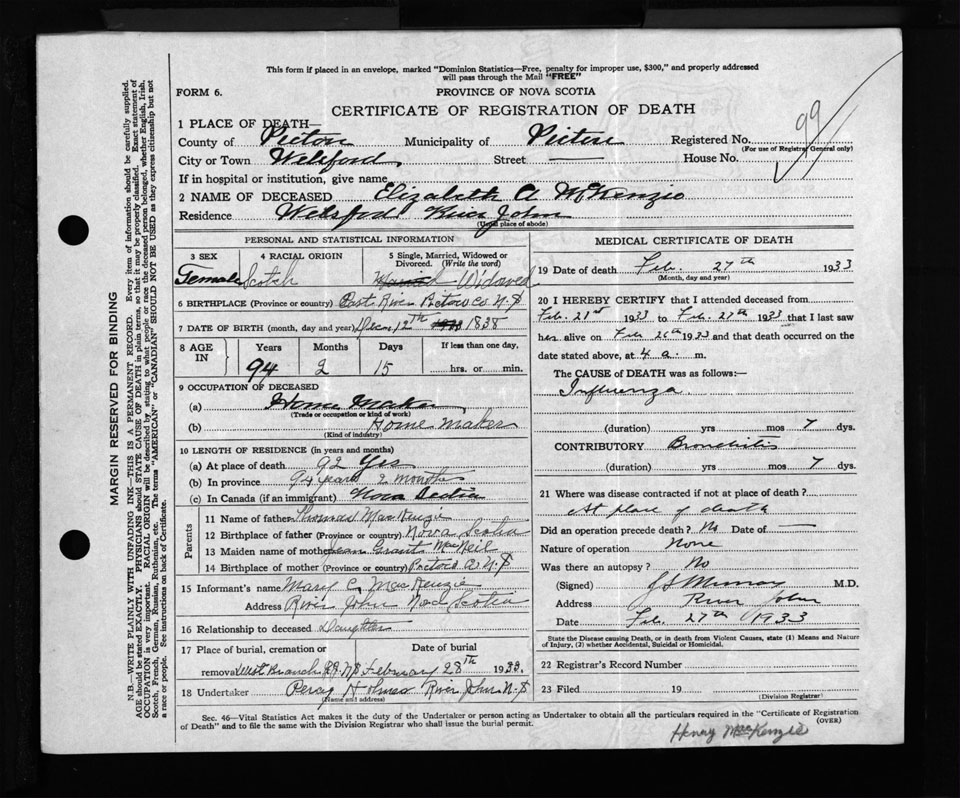 This form if placed in an envelope, marked "Dominion Statistics—Free, penalty for improper use, $300," and properly addressed
will pass through the Mail "FREE"
FORM 6.
PROVINCE OF NOVA SCOTIA
CERTIFICATE OF REGISTRATION OF DEATH
99
1 PLACE OF DEATH—
County of Pictou Municipality of Pictou Registered No.
(For use of Registrar General only)
City or Town Welsford Street — House No.
If in hospital or institution, give name
2 NAME OF DECEASED Elizabeth A McKenzie
Residence Welsford River John
(Usual place of abode)
PERSONAL AND STATISTICAL INFORMATION
3 SEX 4 RACIAL ORIGIN 5 Single, Married, Widowed or
Divorced. (Write the word)
Female Scotch Widowed
6 BIRTHPLACE (Province or country) East River Pictou Co. N.S
7 DATE OF BIRTH (month, day and year) Decm 12th 1838
8 AGE IN Years Months Days If less than one day,
94 2 15 hrs. or min.
9 OCCUPATION OF DECEASED
(a) Home Maker
(Trade or occupation or kind of work)
(b) Home Maker
(Kind of industry)
10 LENGTH OF RESIDENCE (in years and months)
(a) At place of death 92 Yes
(b) In province 94 years 2 months
(c) In Canada (if an immigrant) Nova Scotia
Parents
11 Name of father Thomas MacKenzie
12 Birthplace of father (Province or country) Nova Scotia
13 Maiden name of mother Jean Grant MacNeil
14 Birthplace of mother (Province or country) Pictou Co. N.S
15 Informant's name Mary C. MacKenzie
Address River John Nova Scotia
16 Relationship to deceased Daughter
17 Place of burial, cremation or Date of burial
removal West Branch R.J. N.S February 28th 1933.
18 Undertaker Percy Holmes River John N.S
(Name and address)
MEDICAL CERTIFICATE OF DEATH
19 Date of death Feb. 27th 1933
(Month, day and year)
20 I HEREBY CERTIFY that I attended deceased from
Feb. 21st 1933 to Feb. 27th 1933 that I last saw
her alive on Feb 26th 1933 and that death occurred on the
date stated above, at 4 a. m.
The CAUSE of DEATH was as follows:—
Influenza
(duration) yrs mos 7 dys.
CONTRIBUTORY Bronchitis
(duration) yrs mos 7 dys.
21 Where was disease contracted if not at place of death?
At place of death
Did an operation precede death? No Date of —
Nature of operation None
Was there an autopsy? No
(Signed) J S Murray M.D.
Address River John
Date Feb. 27th 1933
State the Disease causing Death, or in death from Violent Causes, state (1) Means and Nature
of Injury, (2) whether Accidental, Suicidal or Homicidal.
22 Registrar's Record Number
23 Filed 19
(Division Registrar)
Sec. 46—Vital Statistics Act makes it the duty of the Undertaker or person acting as Undertaker to obtain all the particulars required in the "Certificate of Registration
of Death" and to file the same with the Division Registrar who shall issue the burial permit.
(OVER)
Henry MacKenzie
MARGIN RESERVED FOR BINDING
N.B.—WRITE PLAINLY WITH UNFADING INK—THIS IS A PERMANENT RECORD. Every item of information should be carefully supplied.
AGE should be stated EXACTLY. PHYSICIANS should STATE CAUSE OF DEATH in plain terms, so that it may be properly classified. Exact statement of
OCCUPATION is very important. RACIAL ORIGIN will be described by stating to what people or race the deceased person belonged, whether English, Irish,
Scotch, French, German, Russian, Ruthenian, etc. The terms "AMERICAN" or "CANADIAN" SHOULD NOT BE USED as they express citizenship but not
a race or people. See instructions on back of Certificate.